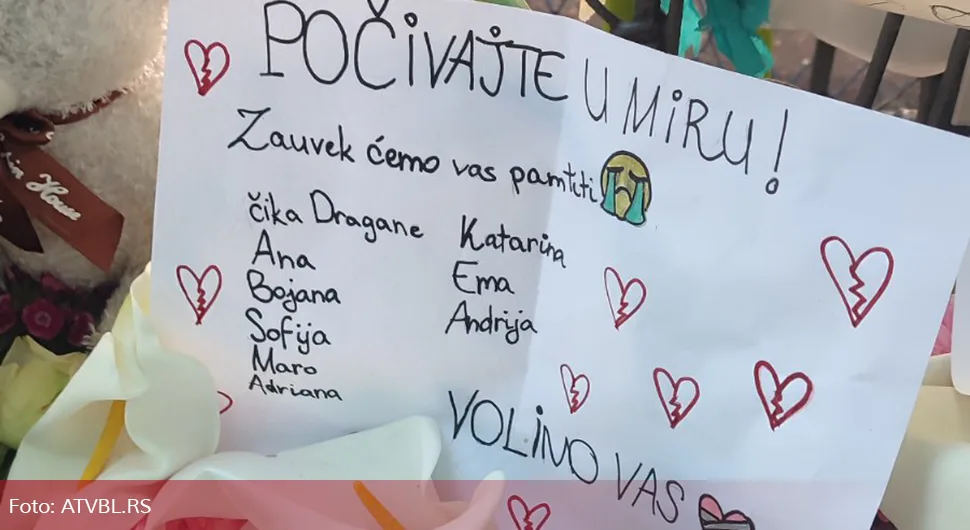 POČIVAJTE U MIRU!
Zauvek ćemo vas pamtiti
čika Dragane
Ana
Bojana
Sofija
Maro
Adriana
Katarina
Ema
Andrija
VOLIMO VAS
House
Foto: ATVBL.RS